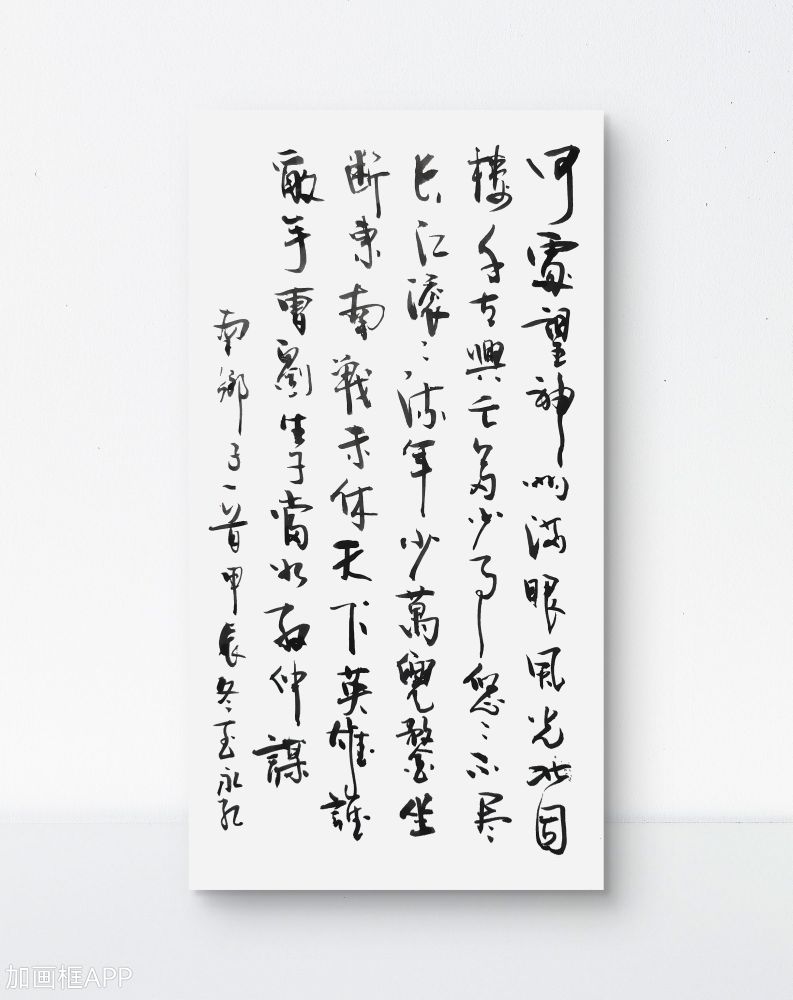 何處望神州满眼風光北固
樓千古興亡多少事悠〻不尽
長江滚〻流年少萬兜鍪坐
斷東南戰未休天下英雄誰
敵手曹劉生子當如孫仲謀
南鄉子一首甲辰冬至永
加画框APP